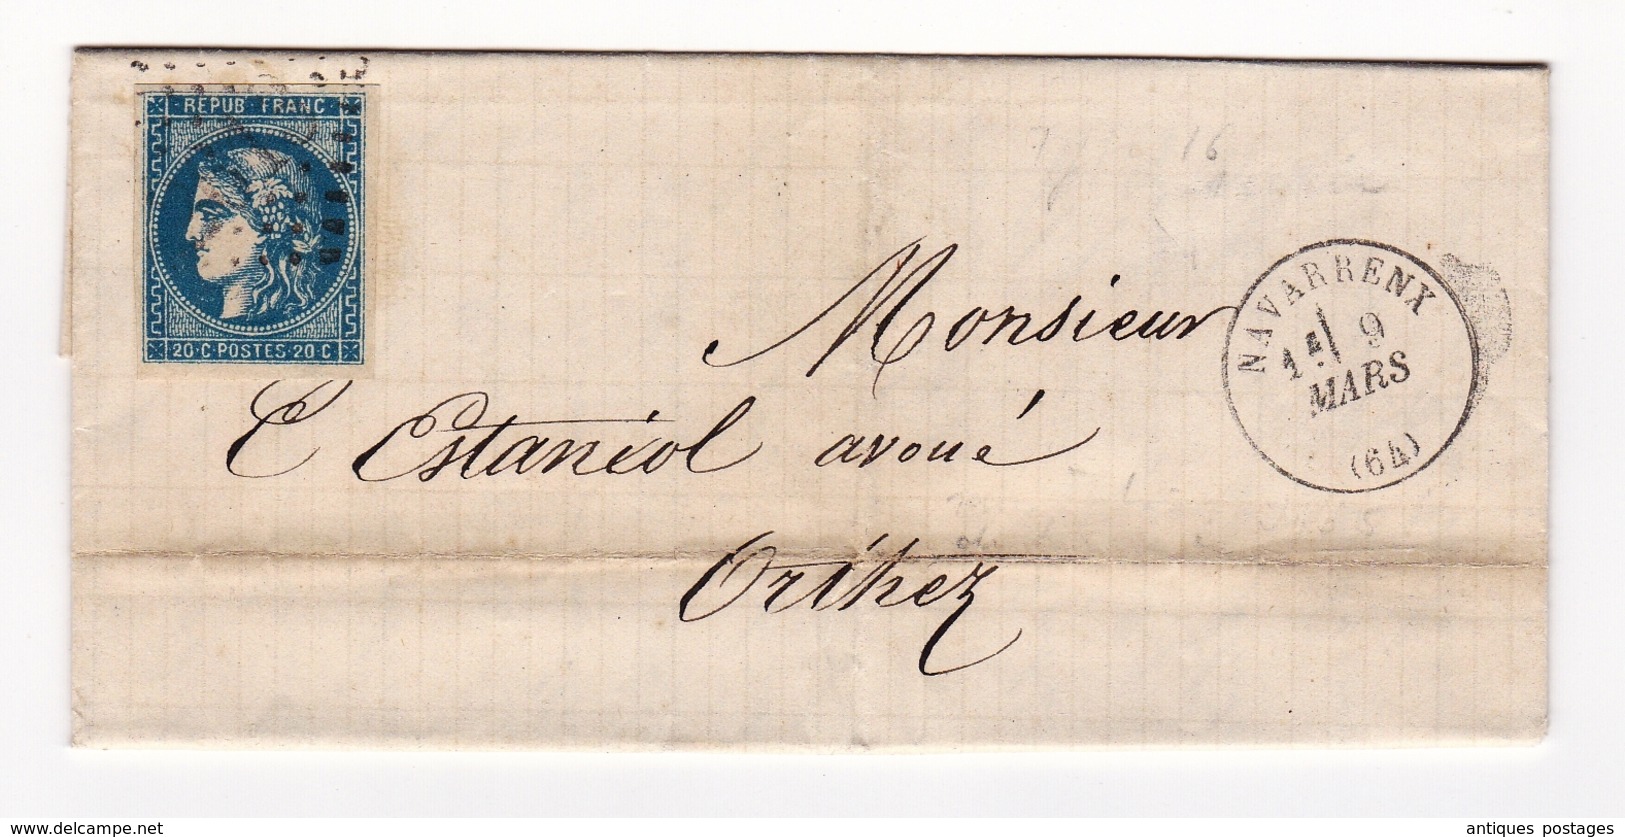 REPUB·FRANC
20·C·POSTES·20·C
NAVARRENX
1E 9
MARS
(64)
16
Monsieur
E Estaniol avoué
Orthez
delcampe.net
antiques postages